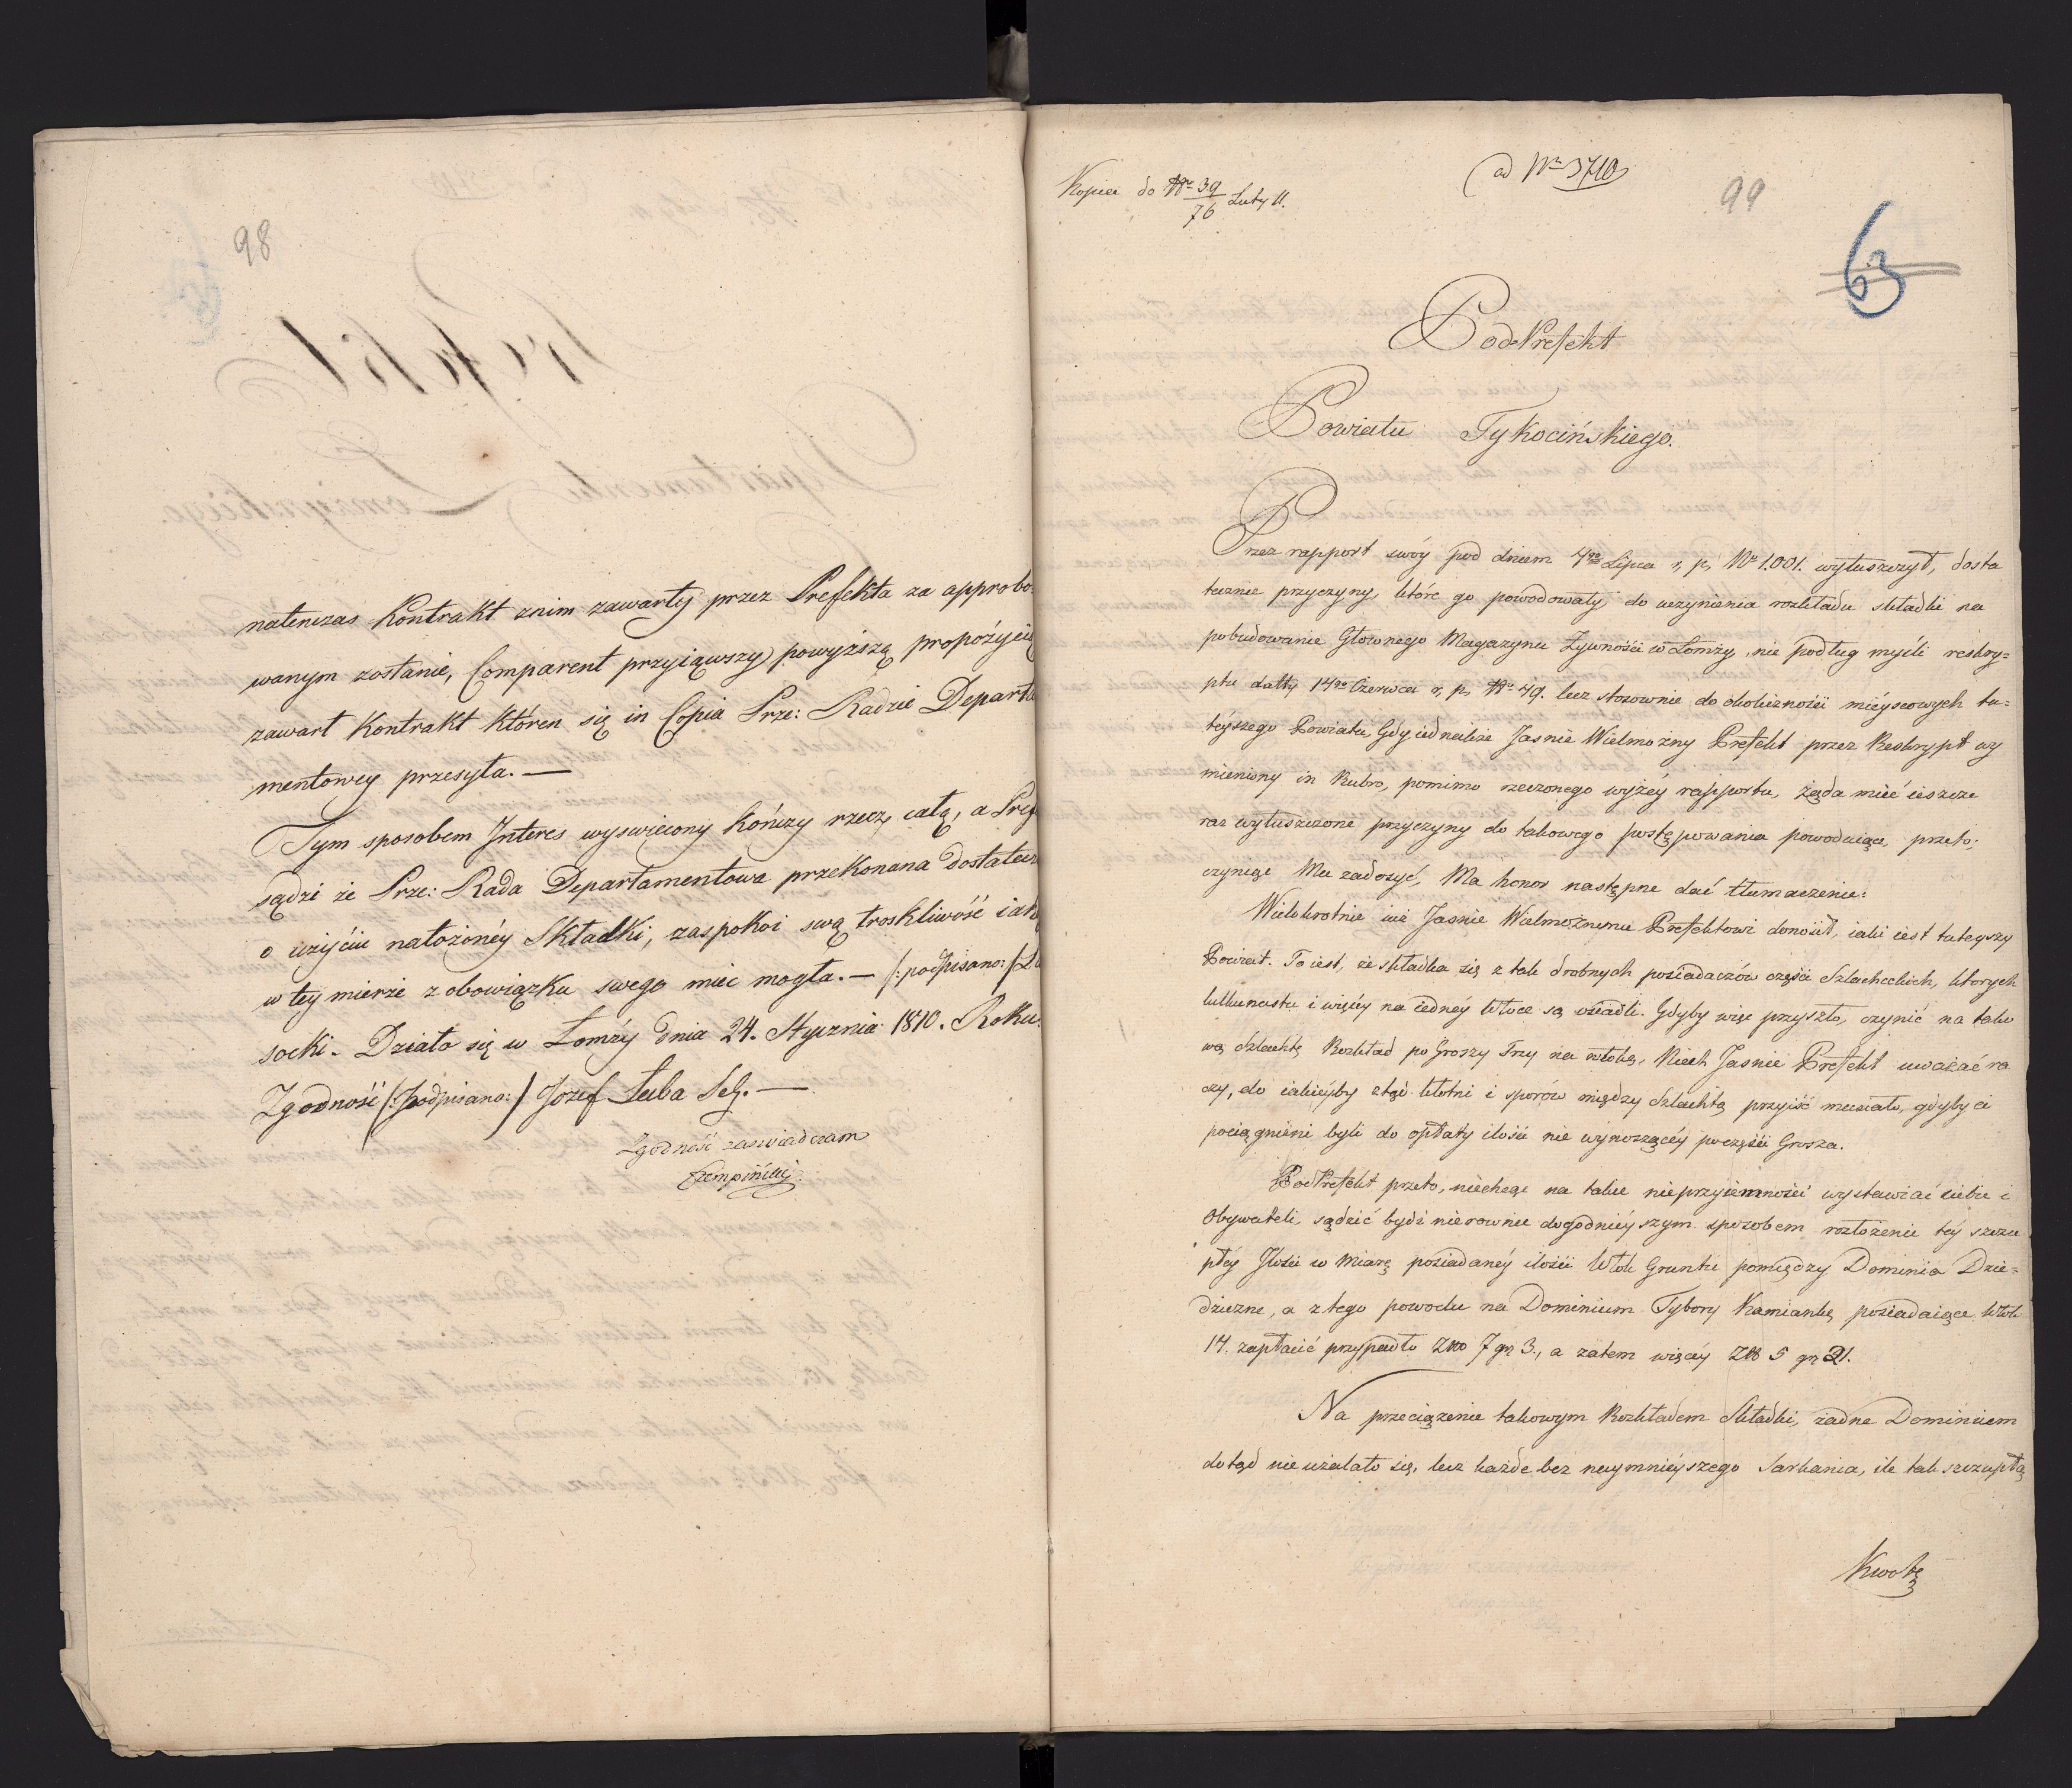 98
natenczas Kontrakt znim zawarty przez Prefekta za approbo-
wanym zostanie, Comparent przyiąwszy powyższą propozycię
zawarł Kontrakt któren się in Copia Prze: Radzie Departa
mentowey przesyła. —
Tym sposobem Interes wyswiecony kończy rzecz całą, a Pref
sądzi że Prze: Rada Departamentowa przekonana dostatecz
o użyciu nałożonéy Składki, zaspokoi swą troskliwość iaką
w tey mierze z obowiązku swego mieć mogła. — /: podpisano: / La
socki. Działo się w Łomży dnia 24. Stycznia 1810. Roku.
Zgodność /: podpisano: / Jozef Łuba Sek. —
Zgodność zaswiadczam
Rempiński
Kopia do Nro 39/76 Luty 11.
ad Nro 3710
99
63
PodPrefekt
Powiatu Tykocińskiego.
Przez rapport swóy pod dniem 4go Lipca r. p. Nro 1.001. wyłuszczył, dosta
tecznie przyczyny, które go powodowały do uczynienia rozkładu składki na
pobudowanie Głownego Magazynu Żywności w Łomży, nie podług myśli reskry=
ptu datty 14go Czerwca r. p. Nro 49. lecz stosownie do okoliczności mieyscowych tu=
teyszego Powiatu, Gdy iednakże Jasnie Wielmożny Prefekt przez Reskrypt wy
mieniony in Rubro, pomimo rzeczonego wyżéy rapportu, żąda mieć ieszcze
raz wyłuszczone przyczyny do takowego postępowania powoduiące, przeto;
czyniąc Mu zadosyć, Ma honor następne dać tłumaczenie:
Wielokrotnie iuż Jasnie Wielmożnemu Prefektowi donosił, iaki iest tuteyszy
Powiat. To iest, że składa się z tak drobnych posiadaczów części Szlacheckich, ktorych
kilkunastu i więcéy na iednéy Włoce są osiedli. Gdyby więc przyszło, czynić na tako
wą Szlachtę Rozkład po Groszy Trzy na włokę, Niech Jasnie Prefekt uważać ra
czy, do iakieyby ztąd kłotni i sporów między Szlachtą przyiść musiało, gdyby ci
pociągnieni byli do opłaty ilości nie wynoszącéy poczęści Grosza.
PodPrefekt przeto, niechcąc na takie nieprzyiemności wystawiać siebie i
Obywateli, sądził bydź nierownie dogodnieyszym sposobem rozłożenie téy szczu
płéy Ilości w miarę posiadanéy ilości Włok Gruntu pomiędzy Dominia Dzie=
dziczne, a z tego powodu na Dominium Tybory Kamianka, posiadaiące Włok
14. zapłacić przypadło Złło 7 gr 3., a zatem więcéy Złł 5 gr 21.
Na przeciążenie takowym Rozkładem Składki, żadne Dominium
dotąd nie użalało się, lecz każde bez naymnieyszego Sarkania, ile tak szczupłą
Kwotę